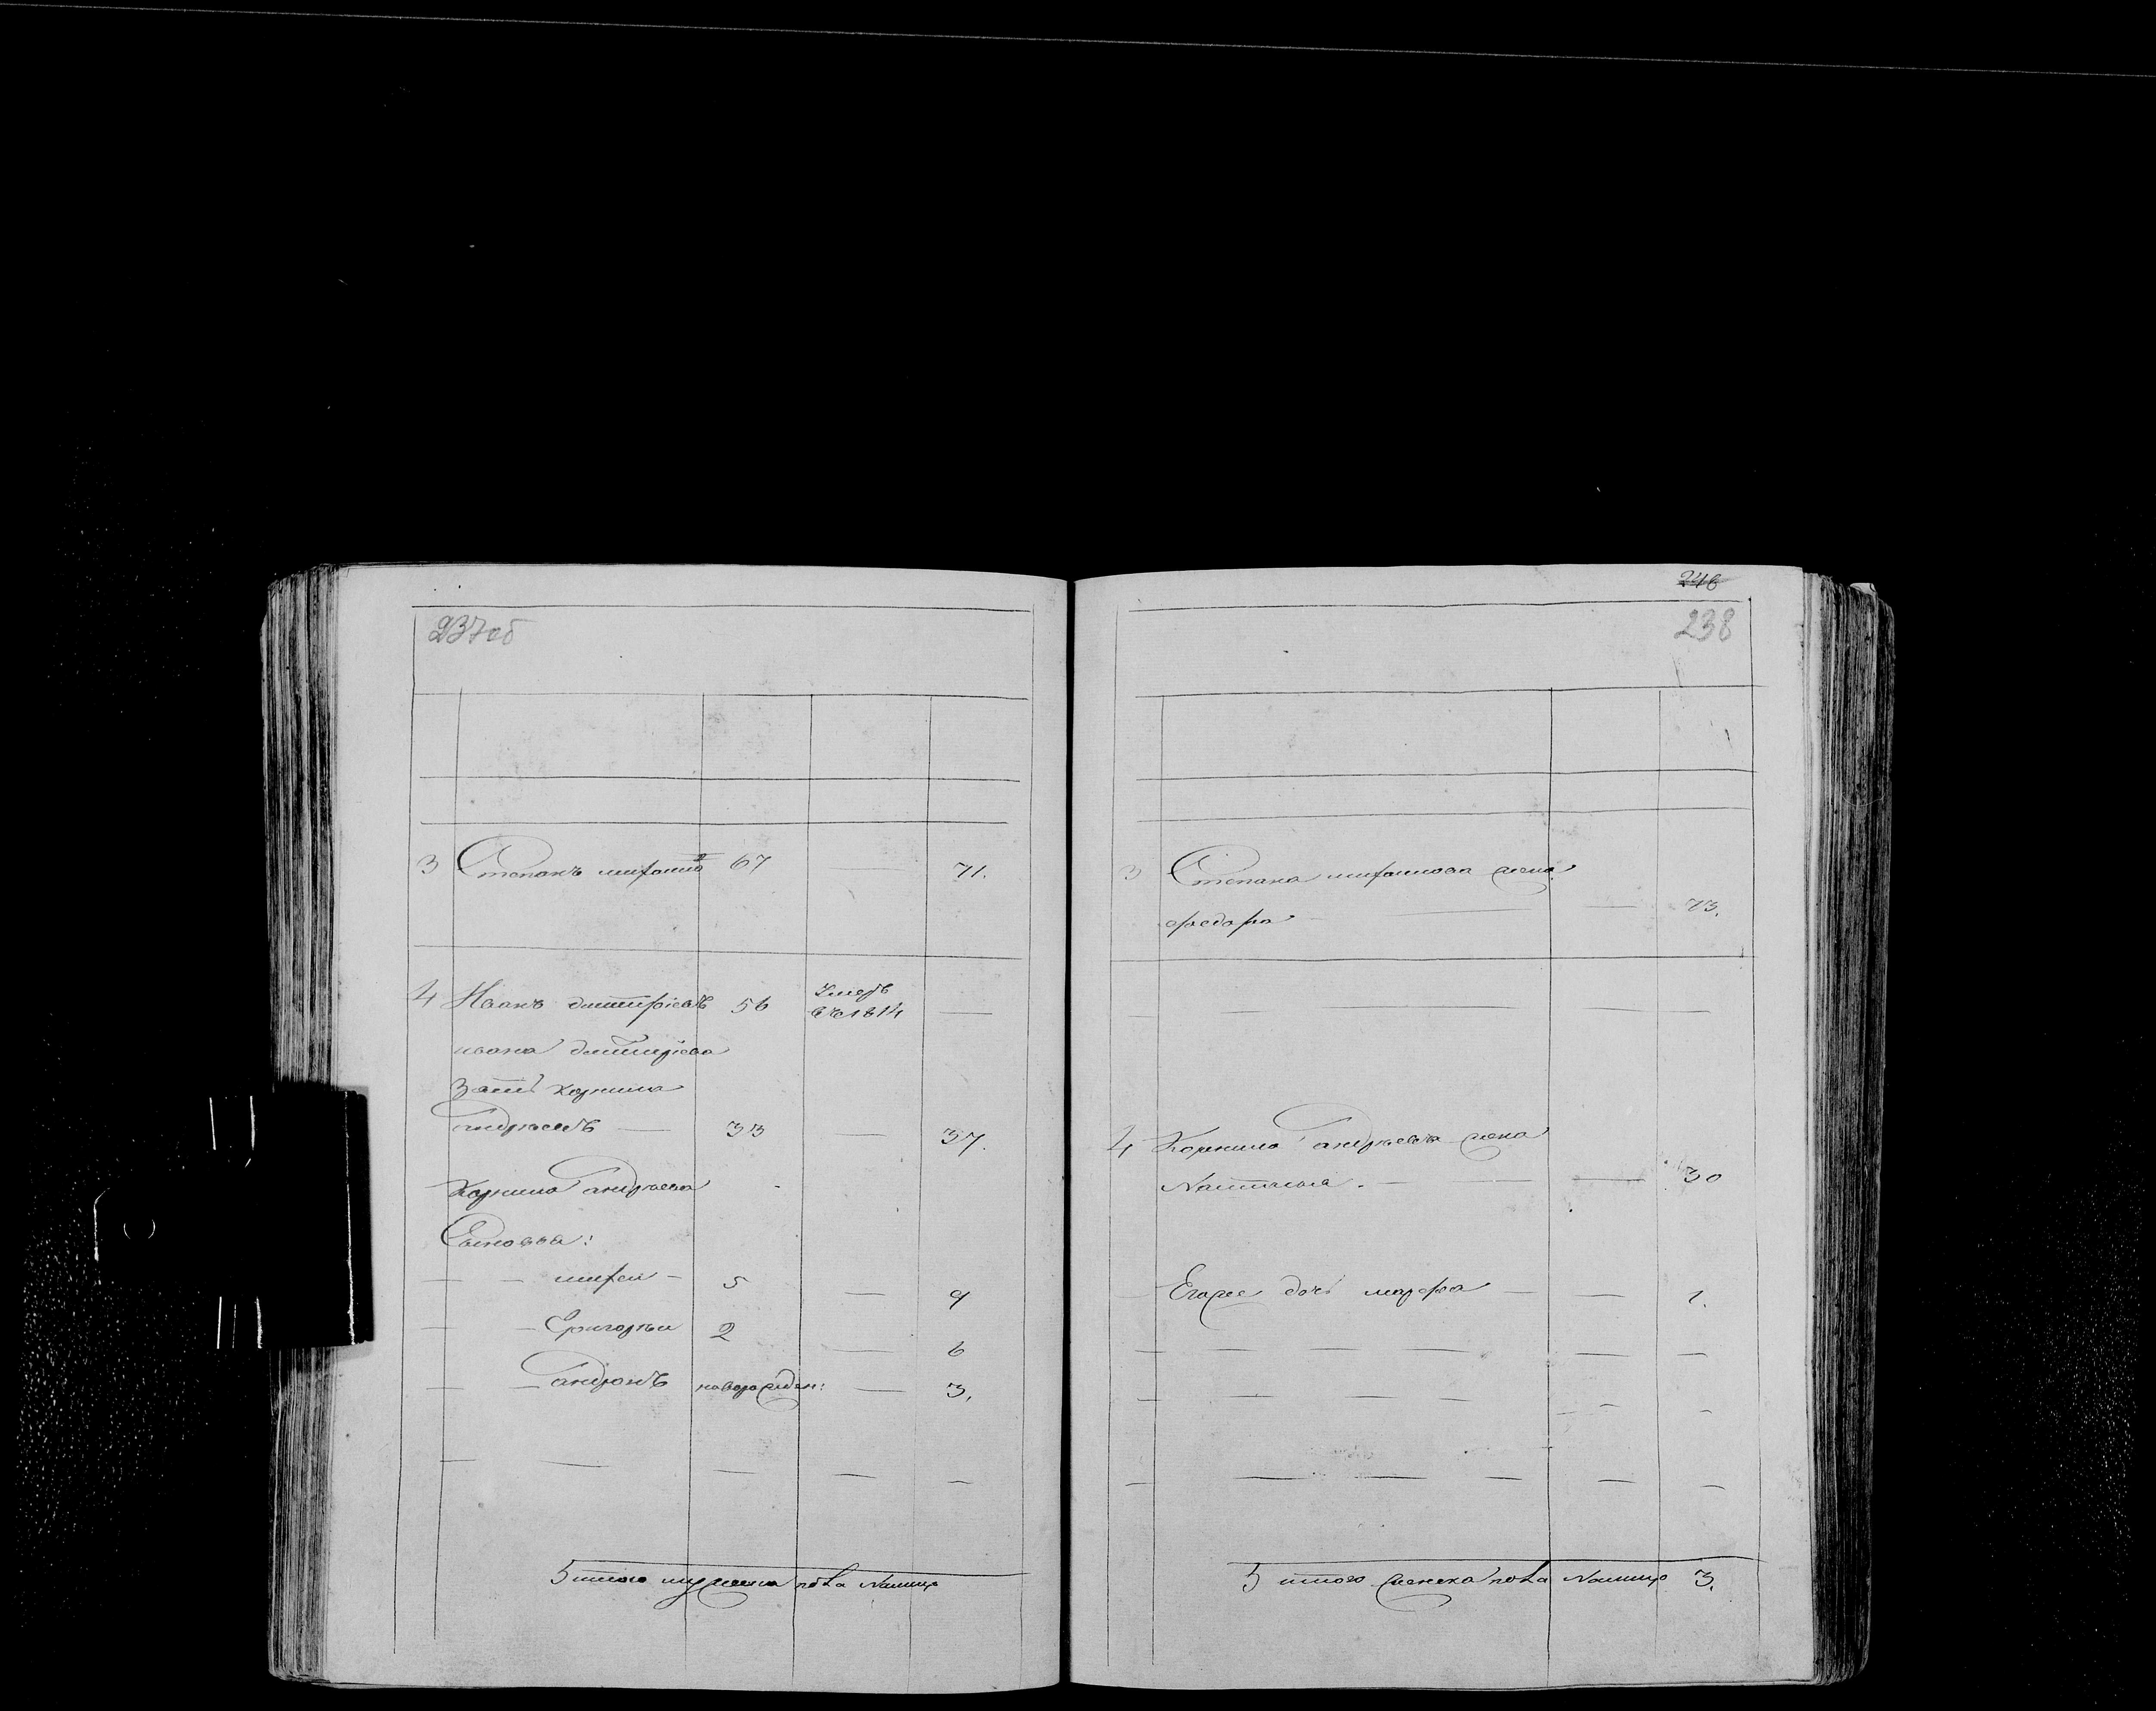 237об
3 Степанъ 67 — 71.
4 Иванъ дмитрiевъ 56 Умеръ
въ 1814 —
ивана дмитрiева
зать корнила
андреевъ — 33 — 37.
Корнила андреева
Сыновья:
— — — 5 — 9
— — Григореи 2 — 6
— — андронъ новорожден: — 3.
— — — — —
итого мужеска пола налицо
246
238
3 Степана жена
федора — — — 73.
— — — — —
4 Корнила андреева жена
Наталья. — — — 30
— Егоже дочь марфа — — 1.
— — — — — —
— — — — — —
— — — — — —
итого женска пола налицо 3.